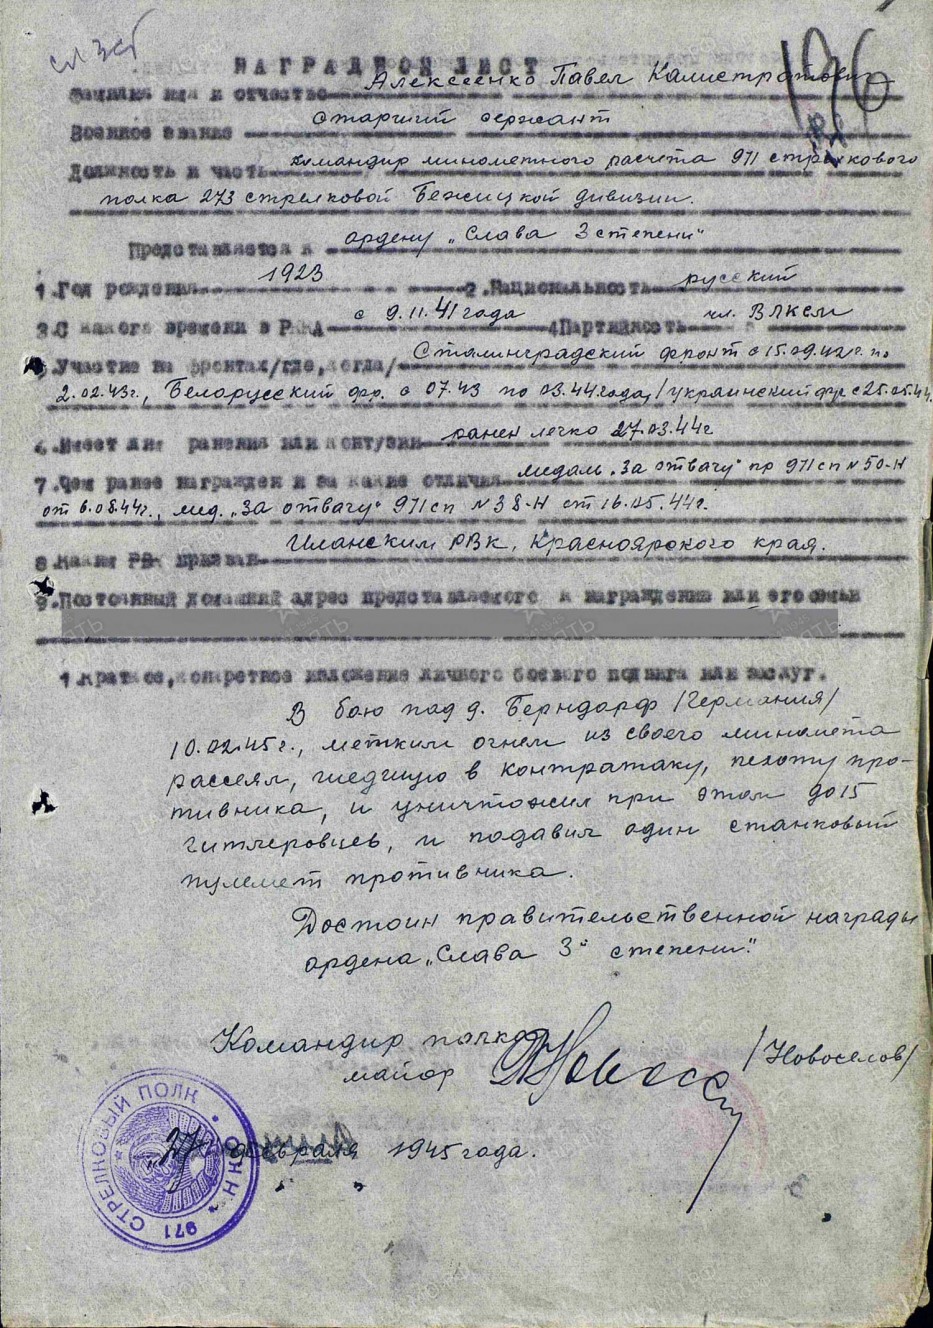 сл 3 ст
НАГРАДНОЙ ЛИСТ
196
Фамилия имя и отчество Алексеенко Павел Калистратович
Военное звание старший сержант
Должность и часть командир минометного расчета 971 стрелкового
полка 273 стрелковой Бежицкой дивизии.
Представляется к ордену „Слава 3 степени"
1.Год рождения 1923 2.Национальность русский
3.С какого времени в РККА с 9.11.41 года 4Партийность чл. ВЛКСМ
5.Участие на фронтах/где,когда/ Сталинградский фронт с 15.09.42 г. по
2.02.43г., Белорусский фр. с 07.43 по 03.44 года, 1 украинский фр с 25.05.44
6.Имеет ли ранения или контузии ранен легко 27.03.44г
7.Чем ранее награжден и за какие отличия медаль „За отвагу" пр 971 сп N 50-Н
от 6.08.44г., мед. „За отвагу" 971 сп N 38-Н от 16.05.44г.
8.Каким РВК призван Иланским РВК, Красноярского края.
9.Постоянный домашний адрес представляемого к награждению или его семьи
1.Краткое,конкретное изложение личного боевого подвига или заслуг.
В бою над д. Берндорф /Германия/
10.02.45г., метким огнем из своего миномета
рассеял, шедшую в контратаку, пехоту про-
тивника, и уничтожил при этом до 15
гитлеровцев, и подавил один станковый
пулемет противника.
Достоин правительственной награды
ордена „Слава 3й степени".
Командир полка
майор /Новоселов/
„27" февраля 1945 года.
971 СТРЕЛКОВЫЙ ПОЛК • С К Н